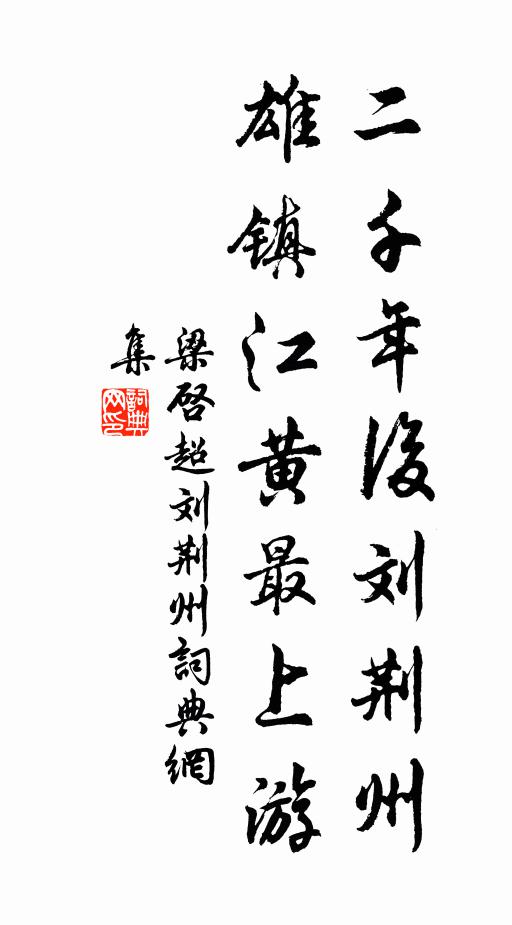 二千年後刘荆州
雄镇江黄最上游
梁啓超刘荆州詞典網
集
詞典
网印